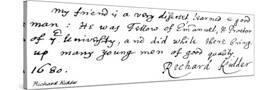 my friend is a very discreet learned & good
man: He was Fellow of Emanuel, & Proctor
of ye Univerſity, and did while there bring
up many young men of good quality
1680. Richard Kidder
Richard Kidder